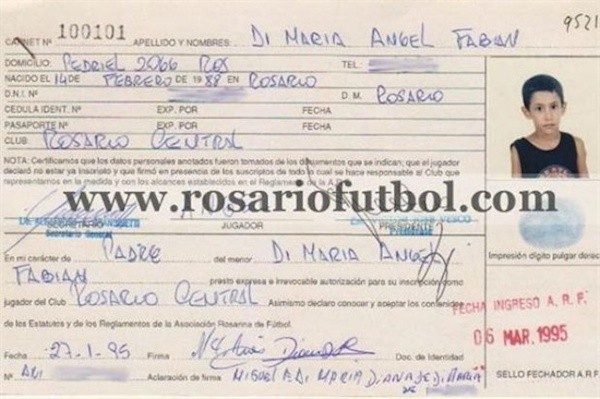 CARNET Nº 100101 APELLIDO Y NOMBRES: DI MARIA ANGEL FABIAN
9521
DOMICILIO: PEDRIEL 2066 ROS TEL.
NACIDO EL 14 DE FEBRERO DE 1988 EN ROSARIO
D.N.I. Nº D. M. ROSARIO
CEDULA IDENT. Nº EXP. POR FECHA
PASAPORTE Nº EXP. POR FECHA
CLUB: ROSARIO CENTRAL
NOTA: Certificamos que los datos personales anotados fueron tomados de los documentos que se indican; que el jugador
declaró no estar ya inscripto y que firmó en presencia de los suscriptos de todo lo cual se hace responsable al Club que
representamos en la medida y con los alcances establecidos en el Reglamento de la A.R.F.
www.rosariofutbol.com
SECRETARIO JUGADOR PRESIDENTE
Secretario General
En mi carácter de PADRE del menor DI MARIA ANGEL
FABIAN presto expresa e irrevocable autorización para su inscripción como
jugador del Club ROSARIO CENTRAL Asimismo declaro conocer y aceptar los contenidos
de los Estatutos y de los Reglamentos de la Asociación Rosarina de Fútbol.
Fecha 27-1-95 Firma Doc. de Identidad
Nº Aclaración de firma MIGUEL A. DI MARIA DIANA DE DI MARIA
Impresión dígito pulgar derec
FECHA INGRESO A. R. F.
06 MAR. 1995
SELLO FECHADOR A.R.F.